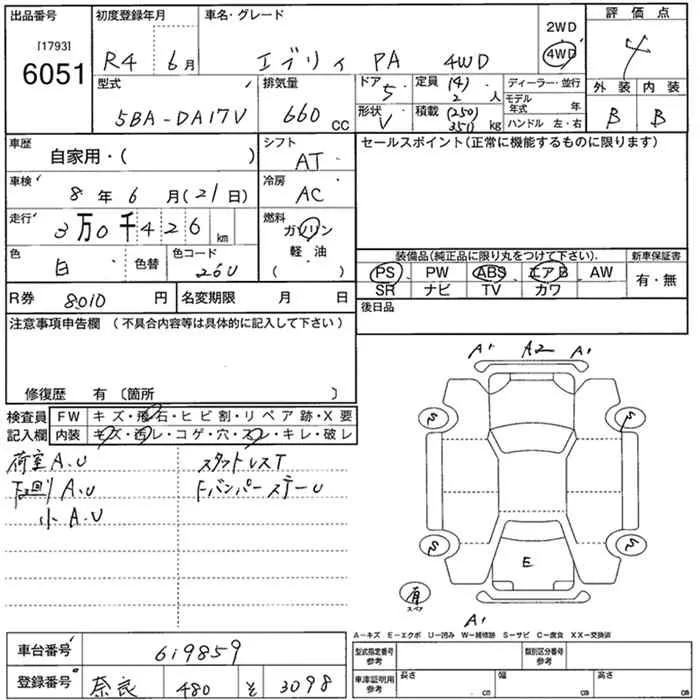 出品番号
[1793]
6051
初度登録年月
R4 6月
車名・グレード
エブリィ PA 4WD
2WD
4WD
評価点
4
型式
5BA-DA17V
排気量
660cc
ドア
5
形状
V
定員 (4)
2 人
積載 (250)
350 kg
ディーラー・並行
モデル年式 年
ハンドル 左・右
外装 内装
B B
車歴
自家用・( )
車検
8年6月(21日)
走行
3万0千426km
色
白
色替
色コード
26U
R券 8010円
名変期限 月 日
シフト
AT
冷房
AC
燃料
ガソリン
軽・油
( )
セールスポイント(正常に機能するものに限ります)
装備品(純正品に限り丸をつけて下さい).
PS PW ABS エアB AW
SR ナビ TV カワ
新車保証書
有・無
後日品
注意事項申告欄 (不具合内容等は具体的に記入して下さい)
修復歴 有 〔箇所 〕
検査員
記入欄
FW キズ・飛石・ヒビ割・リペア跡・X要
内装 キズ・汚レ・コゲ・穴・スレ・キレ・破レ
荷室A.U
下回りA.U
小A.U
スタットレスT
FバンパーステーU
A1 A2 A1
S S
S S
E
有
スペア
A1
A-キズ E-エクボ U-凹み W-補修跡 S-サビ C-腐食 XX-交換済
車台番号
619859
登録番号
奈良 480 そ 3098
型式指定番号
参考
類別区分番号
参考
車庫証明用
参考
長さ cm
幅 cm
高さ cm